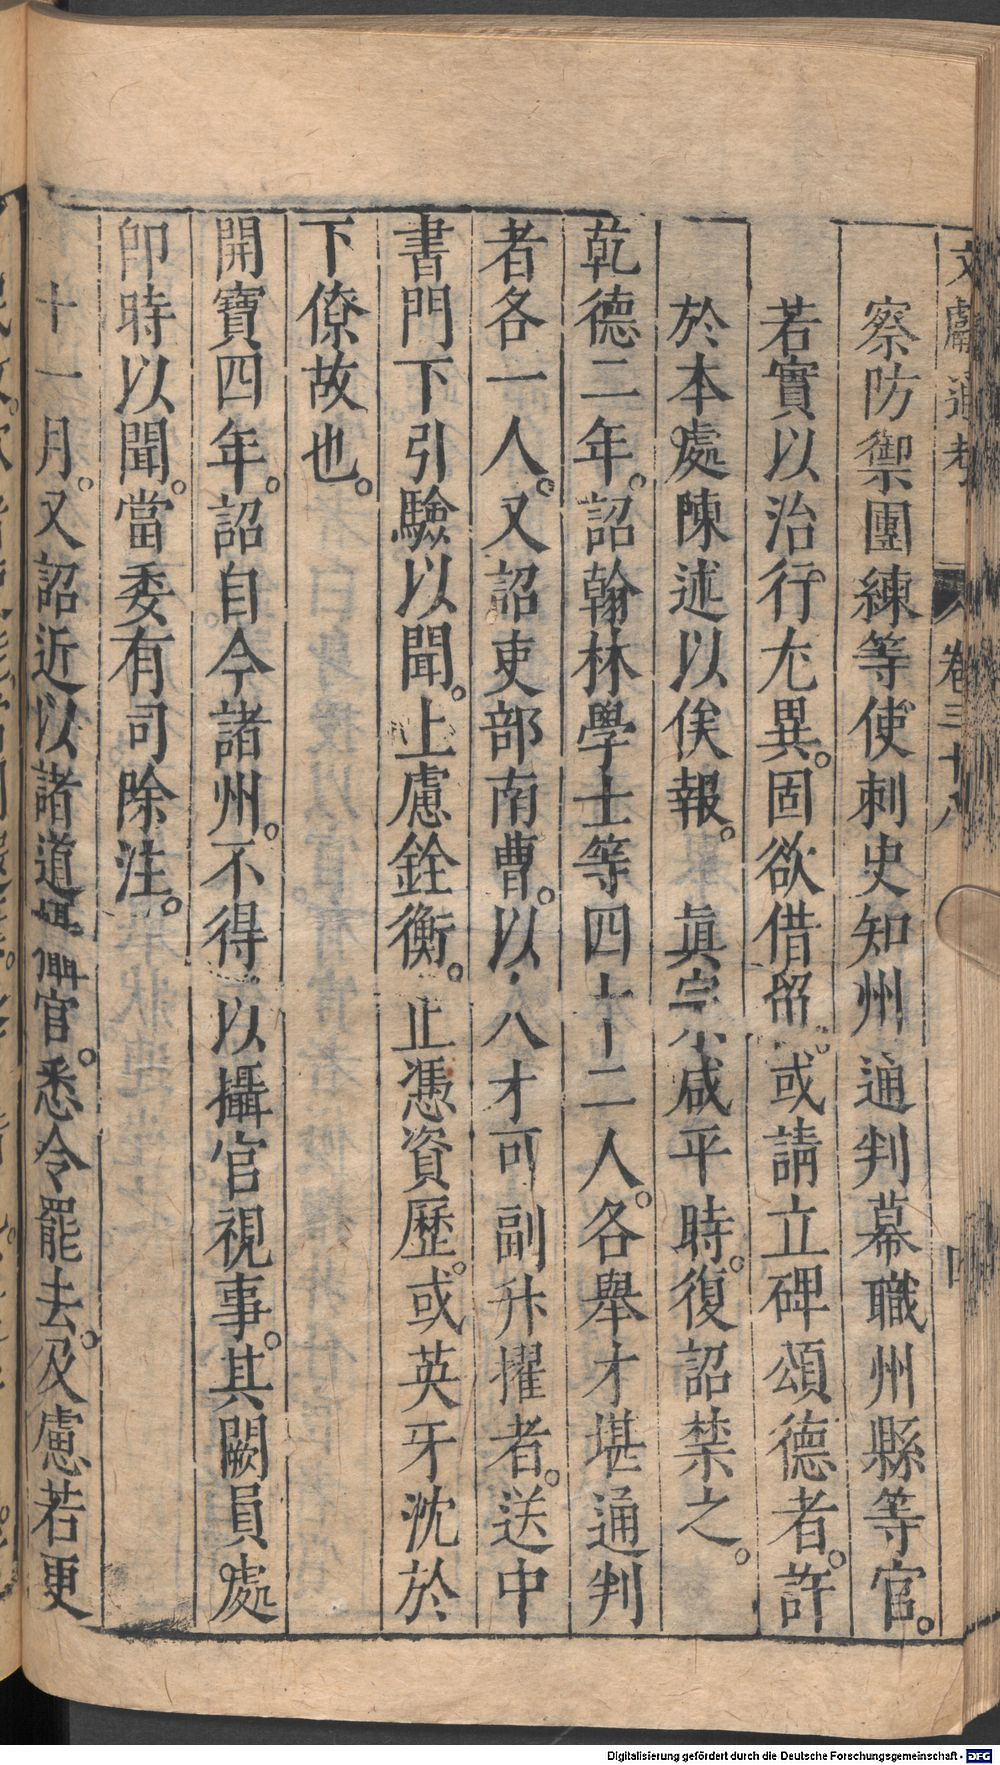 文獻通考 卷三十八 四
察防禦團練等使刺史知州通判幕職州縣等官。
若實以治行尤異。固欲借留。或請立碑頌德者。許
於本處陳述以俟報。眞宗咸平時。復詔禁之。
乾德二年。詔翰林學士等四十二人。各舉才堪通判
者各一人。又詔吏部南曹。以入才可副升擢者。送中
書門下引驗以聞。上慮銓衡。止憑資歷。或英牙沈於
下僚故也。
開寶四年。詔自今諸州。不得以攝官視事。其闕員處
即時以聞。當委有司除注。
十一月。又詔近以諸道攝官。悉令罷去。及慮若更
Digitalisierung gefördert durch die Deutsche Forschungsgemeinschaft - DFG